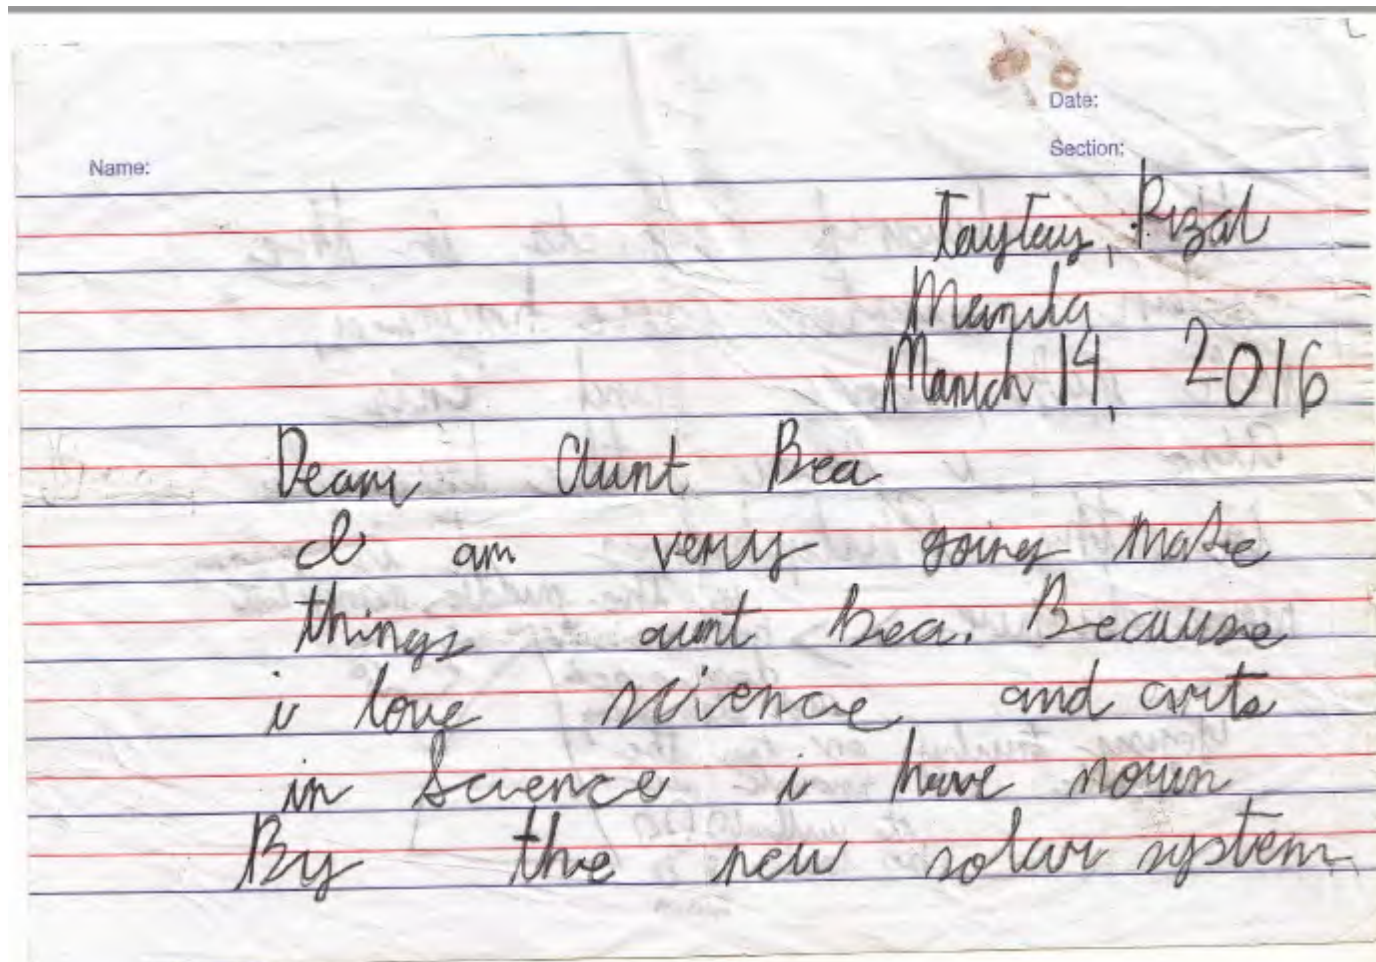 Date:
Section:
Name:
Taytay, Rizal
Manila
March 14, 2016
Dear Aunt Bea
I am very going make
things aunt Bea. Because
i love science and arts
in Science i have nown
By the new solar system